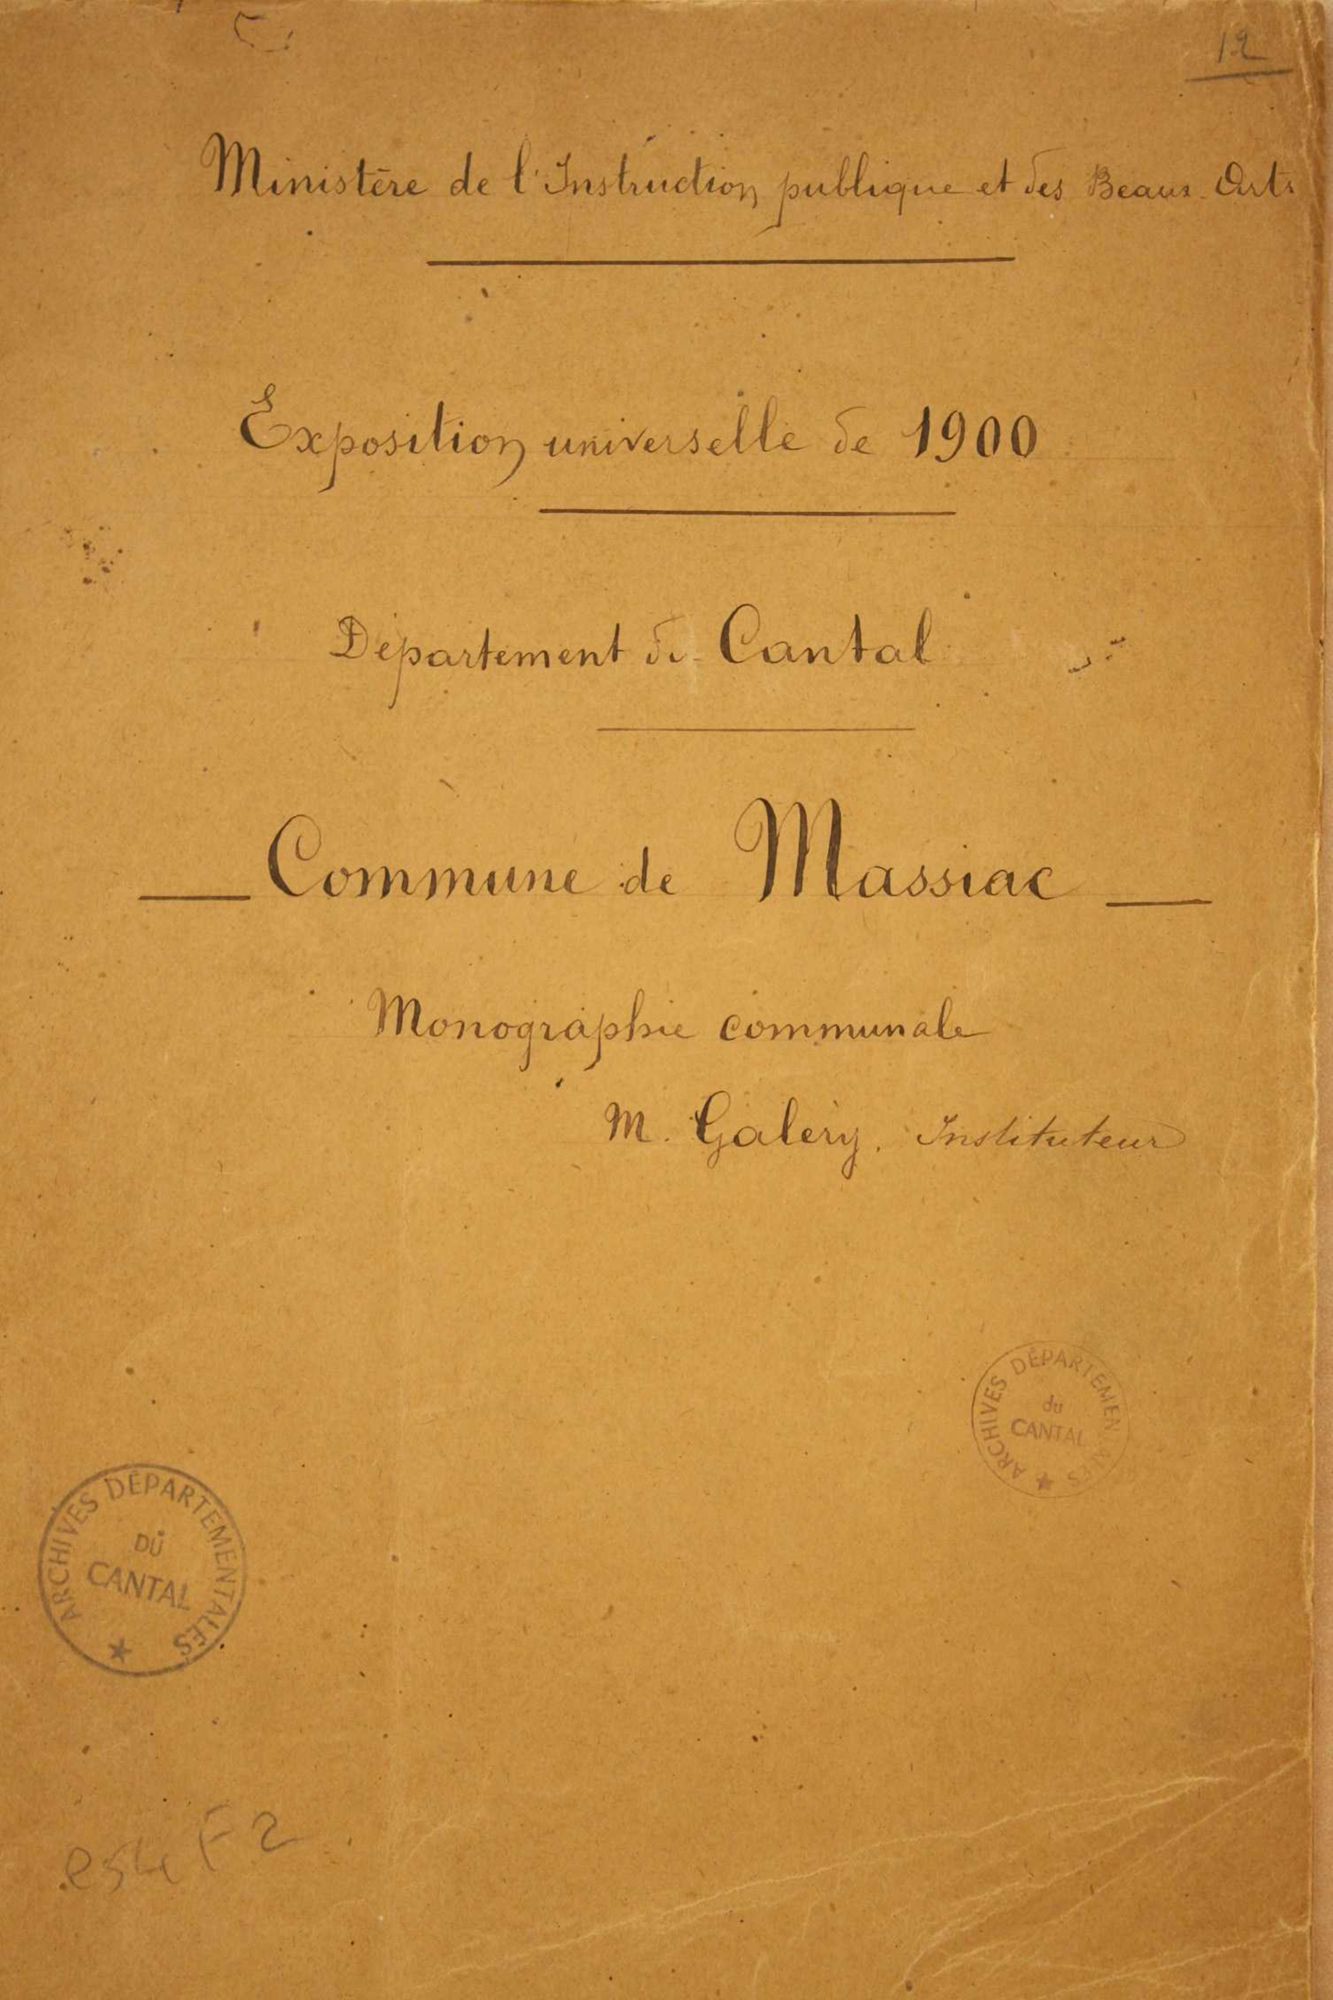 12
Ministère de l'Instruction publique et des Beaux-Arts
Exposition universelle de 1900
Département du Cantal
Commune de Massiac
Monographie communale
M. Galery. Instituteur
ARCHIVES DÉPARTEMENTALES
du
CANTAL
ARCHIVES DÉPARTEMENTALES
DU
CANTAL
F2